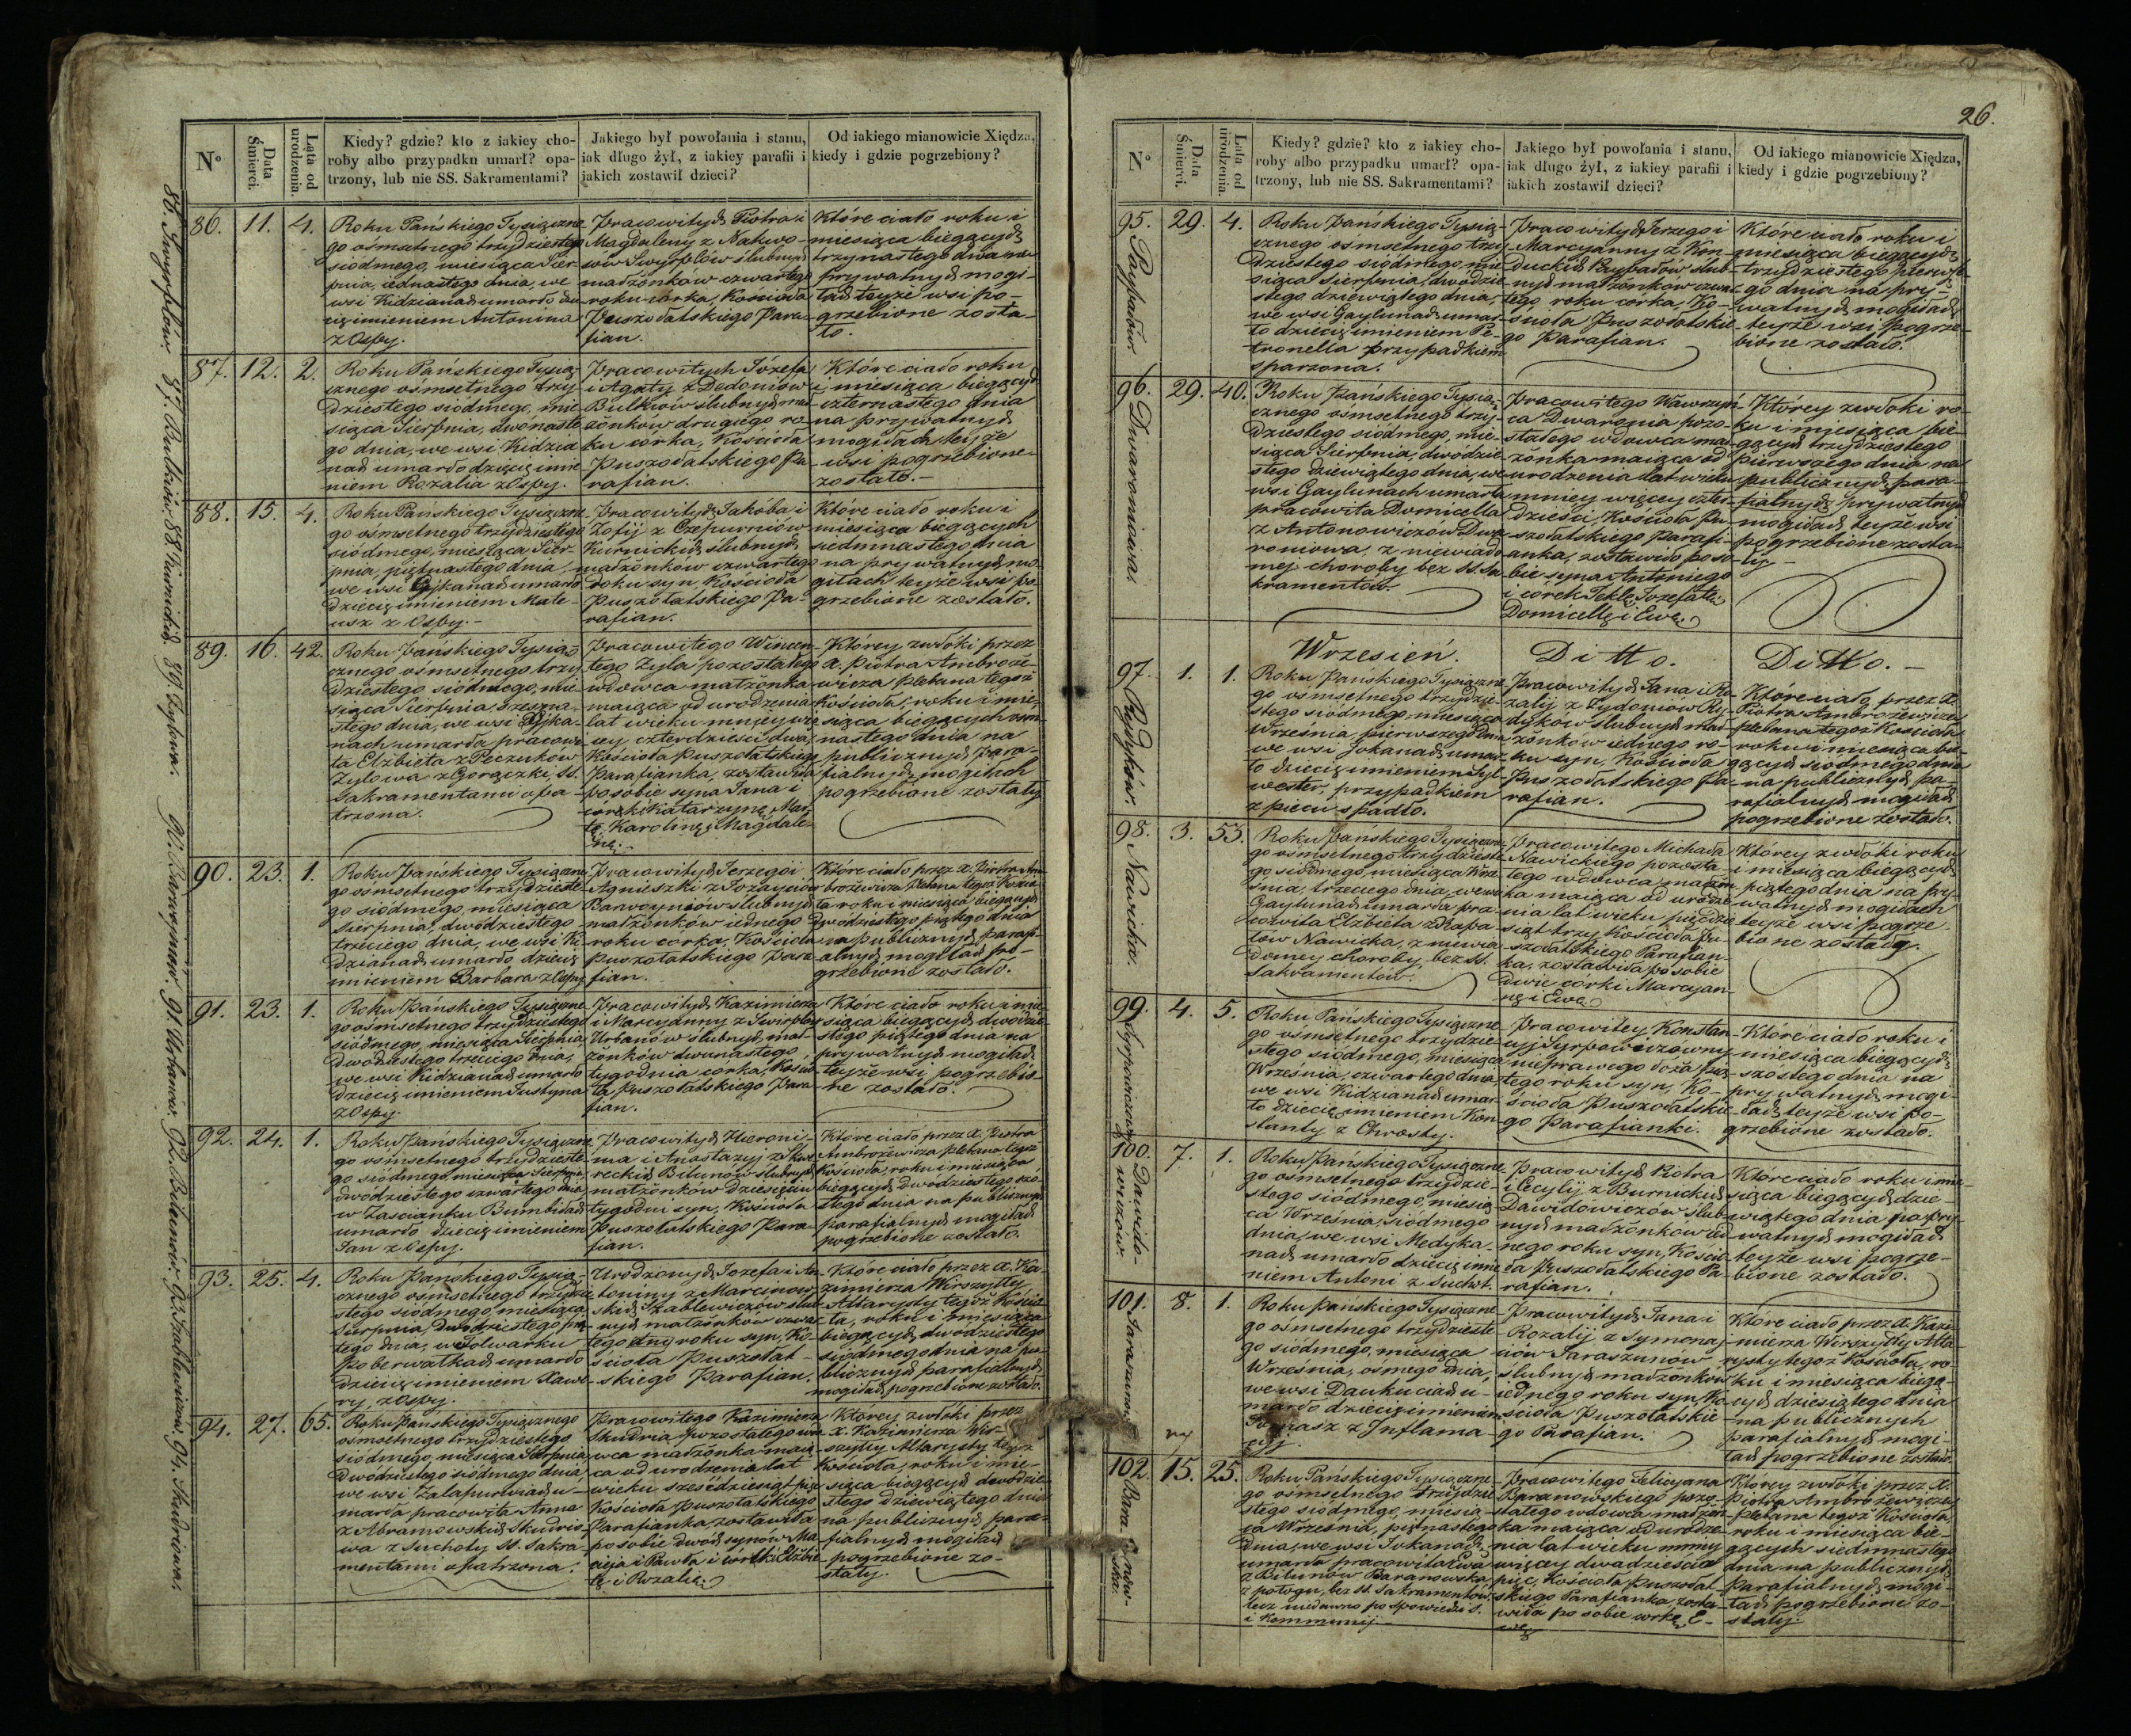 26.
N°
Data Śmierci.
Lata od urodzenia
Kiedy? gdzie? kto z iakiey cho-
roby albo przypadku umarł? opa-
trzony, lub nie SS. Sakramentami?
Jakiego był powołania i stanu,
iak długo żył, z iakiey parafii i
jakich zostawił dzieci?
Od iakiego mianowicie Xiędza,
kiedy i gdzie pogrzebiony?
86. 11. 4.
Roku Pańskiego Tysiączne
go ośmsetnego trzydziestego
siódmego, miesiąca Sier-
pnia, iednastego dnia, we
wsi Kidzianach umarło dzie
cię imieniem Antonina
z Ospy.
Pracowitych Piotra i
Magdaleny z
ślubnych
małżonków czwartego
roku córka, Kościoła
Puszołatskiego Para-
fian.
Które ciało roku i
miesiąca biegących
trzynastego dnia na
prywatnych mogi-
łach teyże wsi po-
grzebione zosta-
ło.
87. 12. 2.
Roku Pańskiego Tysią-
cznego ośmsetnego trzy-
dziestego siódmego, mie-
siąca Sierpnia, dwonaste
go dnia, we wsi Kidzia
nach umarło dziecię imie
niem Rozalia z Ospy.
Pracowitych Józefa
i Agaty z Dedoniów
Butkiów ślubnych mał-
żonków drugiego ro-
ku córka, Kościoła
Puszołatskiego Pa-
rafian.
Które ciało roku
i miesiąca biegących
czternastego dnia
na prywatnych
mogiłach teyże
wsi pogrzebione
zostało.
88. 15. 4.
Roku Pańskiego Tysiączne
go ośmsetnego trzydziestego
siódmego, miesiąca Sier-
pnia, piętnastego dnia,
we wsi umarło
dziecię imieniem Mate-
usz z Ospy.
Pracowitych Jakóba i
Zofij z Czepurniów
Kurnickich ślubnych
małżonków czwartego
roku syn, Kościoła
Puszołatskiego Pa-
rafian.
Które ciało roku i
miesiąca biegących
siedmnastego dnia
na prywatnych mo-
giłach teyże wsi po
grzebione zostało.
89. 16. 42.
Roku Pańskiego Tysią-
cznego ośmsetnego trzy-
dziestego siódmego, mie-
siąca Sierpnia, szesna-
stego dnia, we wsi
nach umarła pracowi-
ta Elżbieta z Poczukow
Zylowa z Gorączki, SS.
Sakramentami opa-
trzona.
Pracowitego Wincen-
tego Zyla pozostałego
wdowca małżonka
maiąca od urodzenia
lat wieku mniey wię
cey czterdzieści dwa,
Kościoła Puszołatskiego
Parafianka, zostawiła
po sobie syna Jana i
córki Katarzynę, Mar
tę, Karolinę, Magdale-
nę.
Którey zwłoki przez
X. Piotra Ambroże-
wicza Plebana tegoż
Kościoła, roku i mie-
siąca biegących osm
nastego dnia na
publicznych para-
fialnych mogiłach
pogrzebione zostały
90. 23. 1.
Roku Pańskiego Tysiączne
go ośmsetnego trzydzieste
go siódmego, miesiąca
Sierpnia, dwódziestego
trzeciego dnia, we wsi Ki
dzianach umarło dziecię
imieniem Barbara z Ospy
Pracowitych Jerzego i
Agnieszki z
ślubnych
małżonków iednego
roku córka, Kościoła
Puszołatskiego Para
fian.
Które ciało przez X. Piotra Am
brożewicza Plebana tegoż Kościo
ła roku i miesiąca biegących
dwódziestego piątego dnia
na publicznych parafi-
alnych mogiłach po-
grzebione zostało.
91. 23. 1.
Roku Pańskiego Tysiączne
go ośmsetnego trzydziestego
siódmego, miesiąca Sierpnia,
dwódziestego trzeciego dnia,
we wsi Kidzianach umarło
dziecię imieniem Justyna
z Ospy.
Pracowitych Kazimierza
i Marcyanny z
Urbanów ślubnych mał-
żonków dwunastego
tygodnia córka, Kościo
ła Puszołatskiego Para
fian.
Które ciało roku i mie
siąca biegących dwódzie
stego piątego dnia na
prywatnych mogiłach
teyże wsi pogrzebio-
ne zostało.
92. 24. 1.
Roku Pańskiego Tysiączne
go ośmsetnego trzydzieste
go siódmego, miesiąca Sierpnia,
dwódziestego czwartego dnia
w Zaścianku Bumbidach
umarło dziecię imieniem
Jan z Ospy.
Pracowitych Hieroni-
ma i Anastazyj z
Bilunów ślubnych
małżonków dziesięciu
tygodni syn, Kościoła
Puszołatskiego Para
fian.
Które ciało przez X. Piotra
Ambrożewicza Plebana tegoż
Kościoła, roku i miesiąca
biegących dwódziestego szó-
stego dnia na publicznych
parafialnych mogiłach
pogrzebione zostało.
93. 25. 4.
Roku Pańskiego Tysią-
cznego ośmsetnego trzydzie
stego siódmego, miesiąca
Sierpnia, dwódziestego pią-
tego dnia, w Folwarku
umarło
dziecię imieniem Xawe-
ry, z Ospy.
Urodzonych Jozefa i An-
toniny z Marcinow-
skich Szablewiczów ślub
nych małżonków czwar
tego roku syn, Ko-
ścioła Puszołat-
skiego Parafian.
Które ciało przez X. Ka-
zimierza Wirszyłły
Altarysty tegoż Kościo
ła, roku i miesiąca
biegących dwódziestego
siódmego dnia na pu
blicznych parafialnych
mogiłach pogrzebione zostało.
94. 27. 65.
Roku Pańskiego Tysiącznego
ośmsetnego trzydziestego
siódmego, miesiąca Sierpnia
dwódziestego siódmego dnia,
we wsi u-
marła pracowita Anna
z Abramowskich Skudrio-
wa z Suchoty SS. Sakra-
mentami opatrzona.
Pracowitego Kazimierza
Skudria pozostałego wdo
wca małżonka maią-
ca od urodzenia lat
wieku sześćdziesiąt pięć
Kościoła Puszołatskiego
Parafianka, zostawiła
po sobie dwóch synów Ma
cieja i Pawła i córki Elżbie
tę i Rozalię.
Którey zwłoki przez
X. Kazimierza Wir-
szyłły Altarysty tegoż
Kościoła, roku i mie-
siąca biegących dwódzie-
stego dziewiątego dnia
na publicznych para-
fialnych mogiłach
pogrzebione zo-
stały.
N°
Data Śmierci.
Lata od urodzenia.
Kiedy? gdzie? kto z iakiey cho-
roby albo przypadku umarł? opa-
trzony, lub nie SS. Sakramentami?
Jakiego był powołania i stanu,
iak długo żył, z iakiey parafii i
iakich zostawił dzieci?
Od iakiego mianowicie Xiędza,
kiedy i gdzie pogrzebiony?
95. 29. 4.
Roku Pańskiego Tysią-
cznego ośmsetnego trzy
dziestego siódmego, mie
siąca Sierpnia, dwódzie
stego dziewiątego dnia,
we wsi Gaylunach umar-
ło dziecię imieniem Pe-
tronella przypadkiem
sparzona.
Pracowitych Jerzego i
Marcyanny z Kon-
duckich ślub-
nych małżonków czwar
tego roku córka, Ko-
ścioła Puszołatskie-
go Parafian.
Które ciało roku i
miesiąca biegących
trzydziestego pierwsze
go dnia na pry-
watnych mogiłach
teyże wsi pogrze-
bione zostało.
96. 29. 40.
Dwaroniowa.
Roku Pańskiego Tysią-
cznego ośmsetnego trzy-
dziestego siódmego, mie-
siąca Sierpnia, dwódzie-
stego dziewiątego dnia, we
wsi Gaylunach umarła
pracowita Domicella
z Antonowiczów Dwa-
roniowa, z niewiado-
mej choroby bez SS. Sa-
kramentów.
Pracowitego Wawrzyń-
ca Dwaronia pozo-
stałego wdowca mał-
żonka maiąca od
urodzenia lat wieku
mniey więcey czter-
dzieści, Kościoła Pu-
szołatskiego Parafi-
anka, zostawiła po so-
bie syna Antoniego
i córek Teklę, Jozefatę,
Domicellę i Ewę.
Którey zwłoki ro-
ku i miesiąca bie-
gących trzydziestego
pierwszego dnia na
publicznych para-
fialnych prywatnych
mogiłach teyże wsi
pogrzebione zosta-
ły.
Wrzesień.
Ditto.
Ditto.
97. 1. 1.
Roku Pańskiego Tysiączne
go ośmsetnego trzydzie-
stego siódmego, miesiąca
Września, pierwszego dnia
we wsi Jokanach umar-
ło dziecię imieniem Syl-
wester, przypadkiem
z pieca spadło.
Pracowitych Jana i Ro-
zalij z
ślubnych mał-
żonków iednego ro-
ku syn, Kościoła
Puszołatskiego Pa-
rafian.
Które ciało przez X.
Piotra Ambrożewicza
Plebana tegoż Kościoła
roku i miesiąca bie-
gących siódmego dnia
na publicznych pa-
rafialnych mogiłach
pogrzebione zostało.
98. 3. 53.
Nawicka.
Roku Pańskiego Tysiączne
go ośmsetnego trzydzieste
go siódmego, miesiąca Wrze
śnia, trzeciego dnia, we wsi
Gaylunach umarła pra-
cowita Elżbieta z
Nawicka, z niewia-
domey choroby, bez SS.
Sakramentów.
Pracowitego Michała
Nawickiego pozosta
łego wdowca małżon
ka maiąca od urodze-
nia lat wieku pięćdzie
siąt trzy, Kościoła Pu-
szołatskiego Parafian-
ka, zostawiła po sobie
dwie córki Marcyan-
nę i Ewę.
Którey zwłoki roku
i miesiąca biegących
piątego dnia na pry-
watnych mogiłach
teyże wsi pogrze-
bione zostały.
99. 4. 5.
Roku Pańskiego Tysiączne
go ośmsetnego trzydzie-
stego siódmego, miesiąca
Września, czwartego dnia,
we wsi Kidzianach umar-
ło dziecię imieniem Kon
stanty z Chrosty.
Pracowitey Konstan
cyj Syrpowiczówny
nieprawego łoża pią-
tego roku syn, Ko-
ścioła Puszołatskie
go Parafianki.
Które ciało roku i
miesiąca biegących
szóstego dnia na
prywatnych mogi-
łach teyże wsi po-
grzebione zostało.
100. 7. 1.
Dawido-
wiczów.
Roku Pańskiego Tysiączne
go ośmsetnego trzydzie-
stego siódmego, miesią-
ca Września, siódmego
dnia, we wsi Medyka-
nach umarło dziecię imie
niem Antoni z Suchot.
Pracowitych Piotra
i Cecylij z Burnickich
Dawidowiczów ślub-
nych małżonków ied-
nego roku syn, Kościo-
ła Puszołatskiego Pa-
rafian.
Które ciało roku i mie-
siąca biegących dzie-
wiątego dnia na pry-
watnych mogiłach
teyże wsi pogrze-
bione zostało.
101. 8. 1.
Roku Pańskiego Tysiączne
go ośmsetnego trzydzieste
go siódmego, miesiąca
Września, ósmego dnia,
we wsi Daukuciach u-
marło dziecię imieniem
Tomasz z Inflama-
cyj.
Pracowitych Jana i
Rozalij z
Taraszunów
ślubnych małżonków
iednego roku syn, Ko-
ścioła Puszołatskie-
go Parafian.
Które ciało przez X. Kazi-
mierza Wirszyłły Alta-
rysty tegoż Kościoła, ro-
ku i miesiąca biegą-
cych dziesiątego dnia
na publicznych
parafialnych mogi-
łach pogrzebione zostało.
102. 15. 25.
Roku Pańskiego Tysiączne-
go ośmsetnego trzydzie
stego siódmego, miesią-
ca Września, piętnastego
dnia, we wsi Jokanach
umarła pracowita Ewa
z Bilunów Baranowska
z połogu, bez SS. Sakramentów,
lecz niedawno po Spowiedzi S.
i Kommunij.
Pracowitego Felicyana
Baranowskiego pozo-
stałego wdowca małżon-
ka maiąca od urodze-
nia lat wieku mniey
więcey dwadzieścia
pięć, Kościoła Puszołat-
skiego Parafianka zosta-
wiła po sobie córkę E-
wę
Którey zwłoki przez X.
Piotra Ambrożewicza
Plebana tegoż Kościoła
roku i miesiąca bie-
gących siedmnastego
dnia na publicznych
parafialnych mogi-
łach pogrzebione zo-
stały.